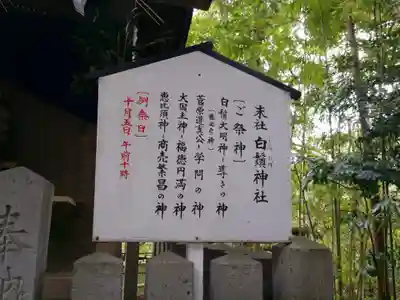 末社 白鬚神社
[ご祭神]
白鬚大明神―導きの神
菅原道真公―学問の神
大国主神―福徳円満の神
恵比須神―商売繁昌の神
[例祭日]
十月五日 午前十時
奉